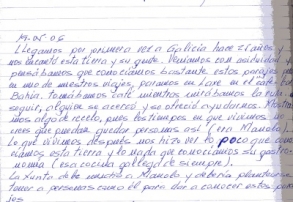 19-IX-06
Llegamos por primera vez a Galicia hace 5 años y
nos encantó esta tierra y su gente. Veníamos con asiduidad y
pensábamos que conocíamos bastante estos parajes
en uno de nuestros viajes, paramos en Laxe en el café bar
Bahía. tomábamos café mientras mirábamos la ruta
seguir, alguien se acercó y se ofreció ayudarnos.
mos algo de recelo, pues los tiempos en que vivimos no
crees que puedan quedar personas así (era Manolo).
Lo que vivimos después nos hizo ver lo poco que cono-
cíamos esta tierra y lo nada que conocíamos su gastro-
nomía (esa cocina gallega de siempre).
La Xunta debe a Manolo y debería plantearse
tener a personas como él para dar a conocer estos para-
jes